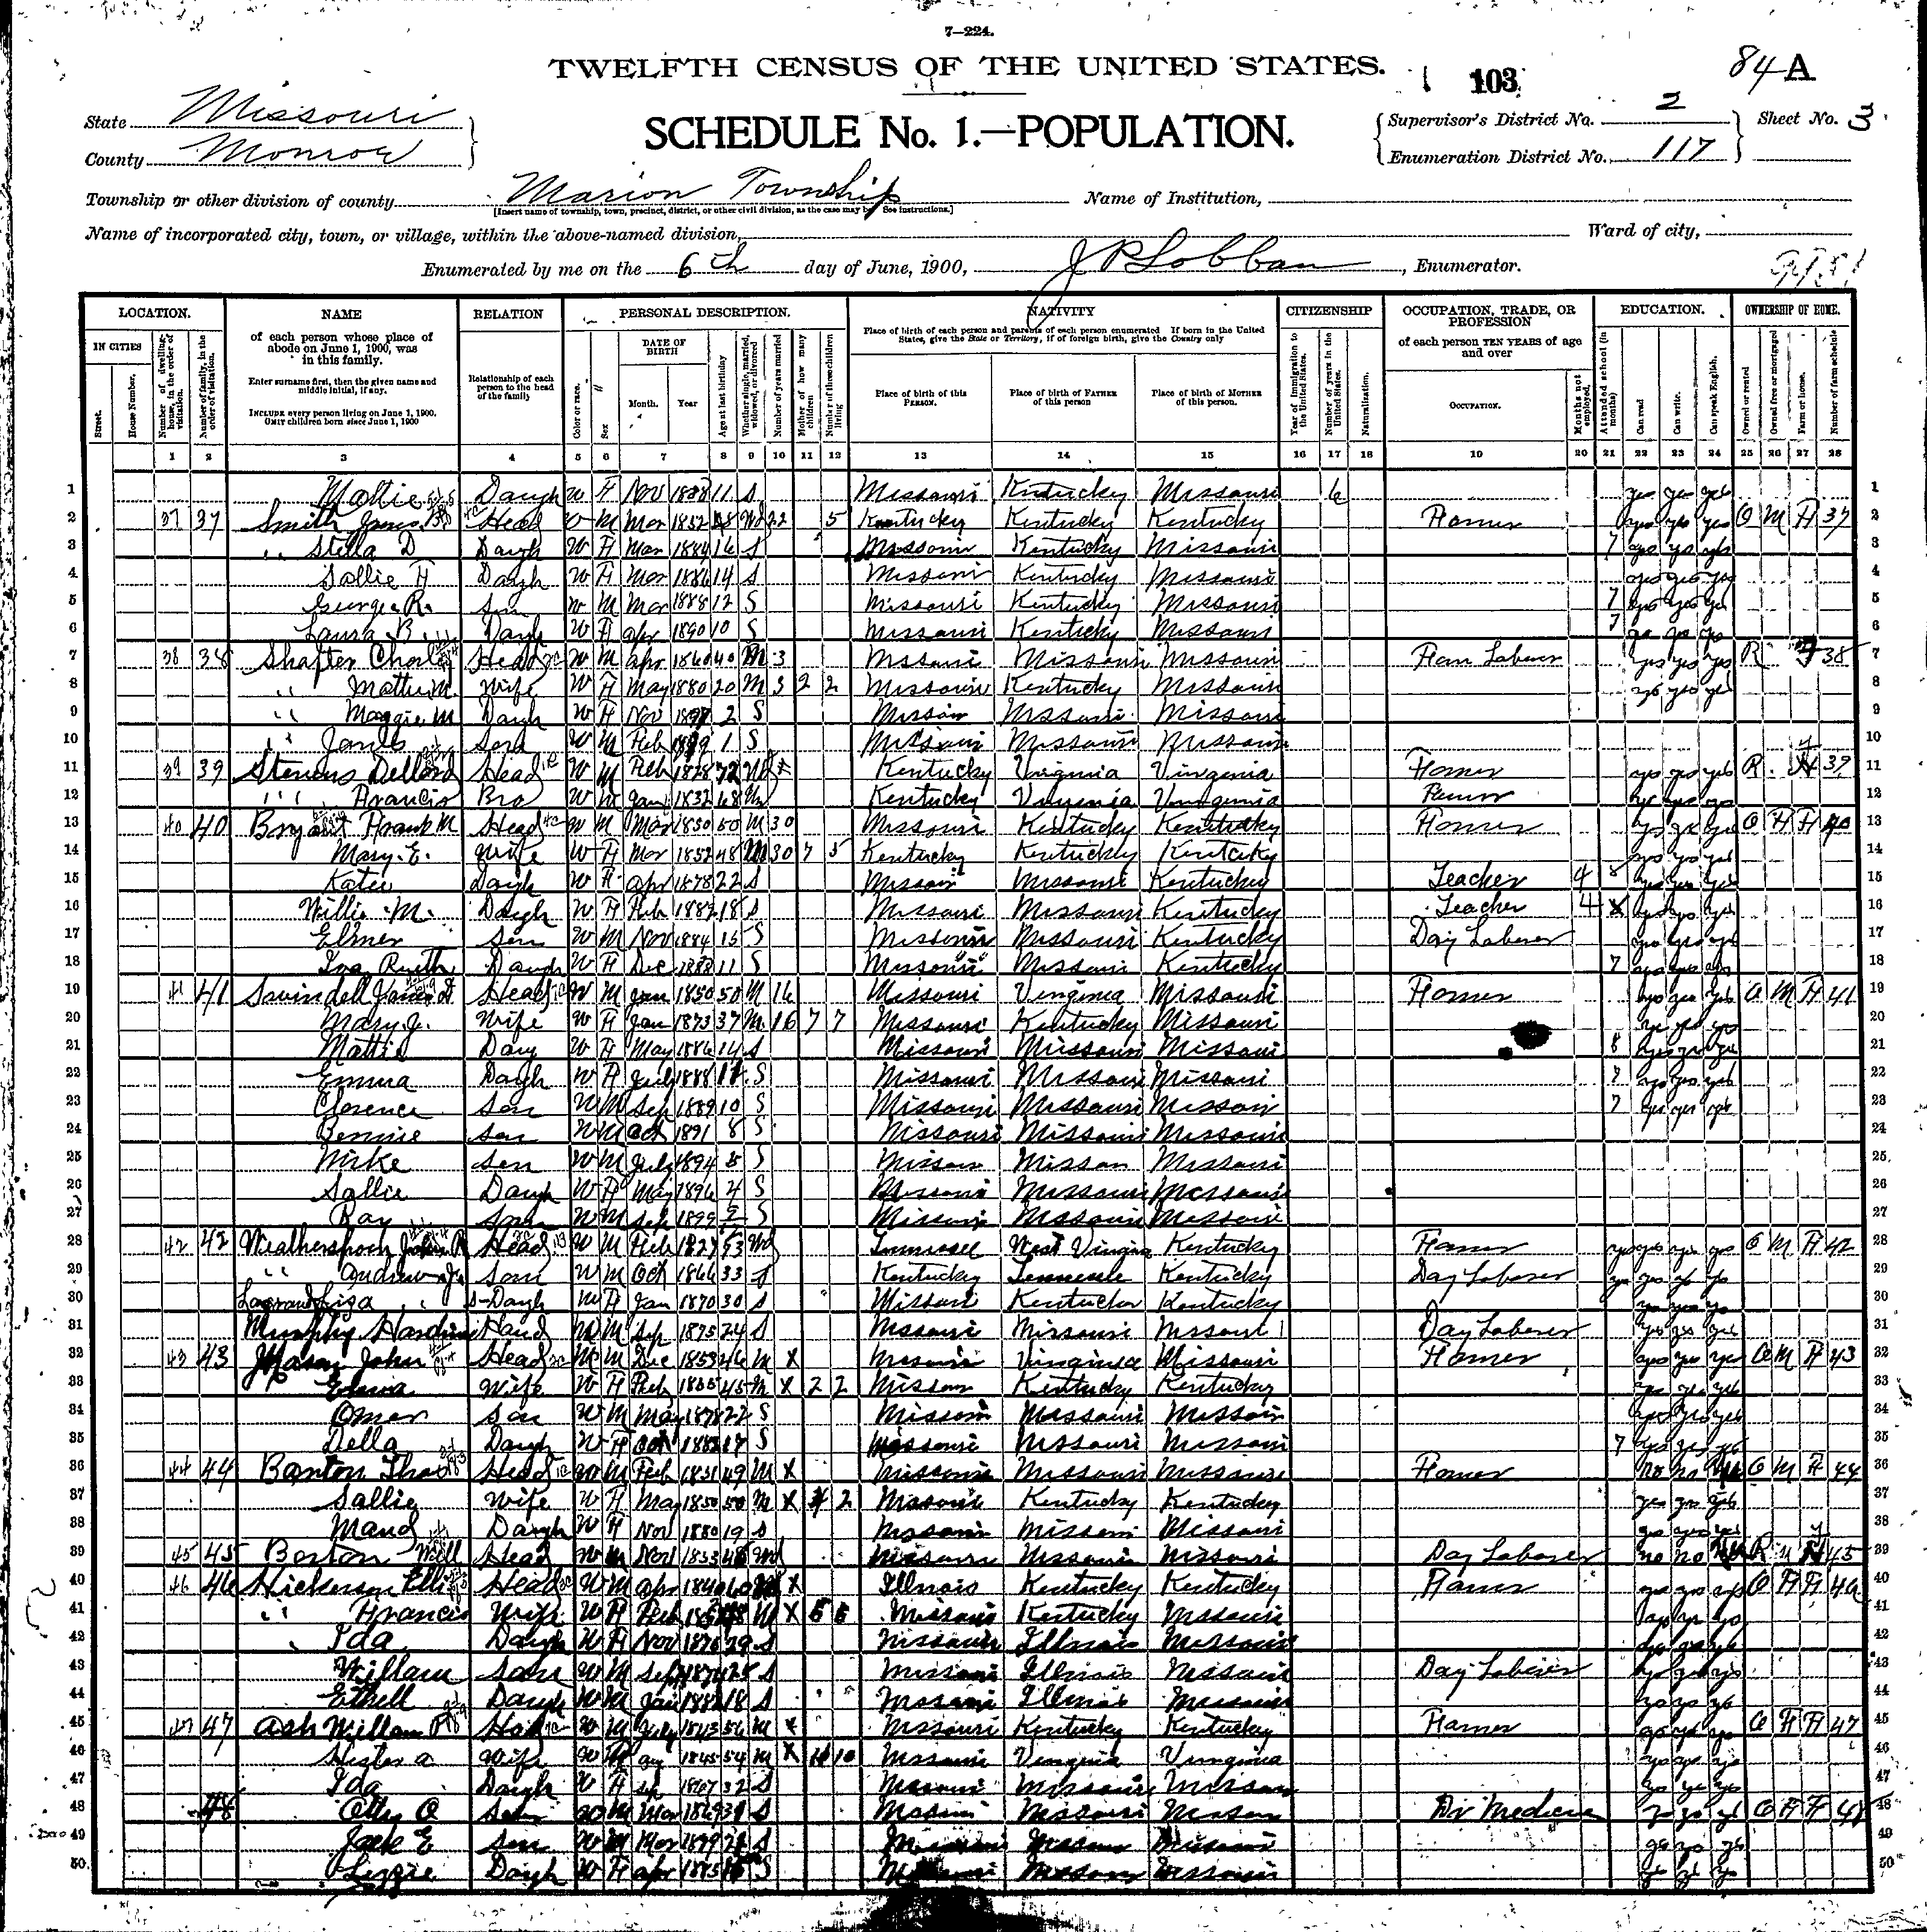 7—224.
TWELFTH CENSUS OF THE UNITED STATES.
103
84 A
State Missouri
County Monroe
SCHEDULE No. 1.—POPULATION.
Supervisor's District No. 2
Enumeration District No. 117
Sheet No. 3
Township or other division of county Marion Township
[Insert name of township, town, precinct, district, or other civil division, as the case may be. See instructions.]
Name of Institution,
Name of incorporated city, town, or village, within the above-named division,
Ward of city,
Enumerated by me on the 6th day of June, 1900, J P Lobban, Enumerator.
LOCATION. NAME RELATION. PERSONAL DESCRIPTION. NATIVITY CITIZENSHIP OCCUPATION, TRADE, OR PROFESSION EDUCATION. OWNERSHIP OF HOME.
IN CITIES
Street.
House Number.
Number of dwelling-house, in the order of visitation.
Number of family, in the order of visitation.
of each person whose place of abode on June 1, 1900, was in this family.
Enter surname first, then the given name and middle initial, if any.
INCLUDE every person living on June 1, 1900.
OMIT children born since June 1, 1900
Relationship of each person to the head of the family
Color or race.
Sex
DATE OF BIRTH
Month. Year
Age at last birthday
Whether single, married, widowed, or divorced
Number of years married
Mother of how many children
Number of these children living
Place of birth of each person and parents of each person enumerated If born in the United States, give the State or Territory, if of foreign birth, give the Country only
Place of birth of this PERSON.
Place of birth of FATHER of this person
Place of birth of MOTHER of this person.
Year of immigration to the United States.
Number of years in the United States.
Naturalization.
of each person TEN YEARS of age and over
OCCUPATION.
Months not employed.
Attended school (in months)
Can read
Can write.
Can speak English.
Owned or rented
Owned free or mortgaged
Farm or house.
Number of farm schedule
1 2 3 4 5 6 7 8 9 10 11 12 13 14 15 16 17 18 19 20 21 22 23 24 25 26 27 28
1 Mattie Daugh W F Nov 1888 11 S Missouri Kentucky Missouri yes yes yes 1
2 37 37 Smith James Head W M Mar 1852 48 Wd 22 5 Kentucky Kentucky Kentucky Farmer yes yes yes O M F 37 2
3 " Stella D Daugh W F Mar 1884 16 S Missouri Kentucky Missouri 7 yes yes yes 3
4 Sallie F Daugh W F Mar 1886 14 S Missouri Kentucky Missouri yes yes yes 4
5 George R. Son W M Mar 1888 12 S Missouri Kentucky Missouri 7 yes yes yes 5
6 Laura B. Daugh W F Apr 1890 10 S Missouri Kentucky Missouri 7 yes yes yes 6
7 38 38 Shafter Charley Head W M Apr 1860 40 M 3 Missouri Missouri Missouri Farm Laborer yes yes yes R F 38 7
8 " Mattie M. Wife W F May 1880 20 M 3 2 2 Missouri Kentucky Missouri yes yes yes 8
9 " Maggie M Daugh W F Nov 1897 2 S Missouri Missouri Missouri 9
10 " James Son W M Feb 1899 1 S Missouri Missouri Missouri 10
11 39 39 Head W M Feb 1828 72 Wd Kentucky Virginia Virginia Farmer yes yes yes R 39 11
12 " Francis Bro W M Jan 1832 68 Kentucky Virginia Virginia Farmer yes yes yes 12
13 40 40 Bryant Frank M Head W M Mar 1850 50 M 30 Missouri Kentucky Kentucky Farmer yes yes yes O F F 40 13
14 Mary E. Wife W F Mar 1852 48 M 30 7 5 Kentucky Kentucky Kentucky yes yes yes 14
15 Katie Daugh W F Apr 1878 22 S Missouri Missouri Kentucky Teacher 4 yes yes yes 15
16 Willie M. Daugh W F Feb 1882 18 S Missouri Missouri Kentucky Teacher 4 yes yes yes 16
17 Elmer Son W M Nov 1884 15 S Missouri Missouri Kentucky Day Laborer yes yes yes 17
18 Iva Ruth Daugh W F Dec 1888 11 S Missouri Missouri Kentucky 7 yes yes yes 18
19 41 41 Swindell James Head W M Jan 1850 50 M 16 Missouri Virginia Missouri Farmer yes yes yes O M F 41 19
20 Mary J. Wife W F Jan 1873 37 M 16 7 7 Missouri Kentucky Missouri yes yes yes 20
21 Mattie Daug W F May 1886 14 S Missouri Missouri Missouri 8 yes yes yes 21
22 Emma Daugh W F July 1888 11 S Missouri Missouri Missouri 7 yes yes yes 22
23 Clarence Son W M Sep 1889 10 S Missouri Missouri Missouri 7 yes yes yes 23
24 Bennie Son W M Oct 1891 8 S Missouri Missouri Missouri 24
25 Son W M July 1894 5 S Missouri Missouri Missouri 25
26 Sallie Daugh W F May 1896 4 S Missouri Missouri Missouri 26
27 Ray Son W M Sep 1899 S Missouri Missouri Missouri 27
28 42 42 Weatherspoon John R Head W M Feb 1827 Wd Tennessee West Virginia Kentucky Farmer yes yes yes O M F 42 28
29 " Andrew J. Son W M Oct 1866 33 S Kentucky Tennessee Kentucky Day Laborer yes yes yes 29
30 Lisa S-Daugh W F Jan 1870 30 S Missouri Kentucky Kentucky yes yes yes 30
31 Murphy Hardin Hand W M Sep 1875 24 S Missouri Missouri Missouri Day Laborer yes yes yes 31
32 43 43 Mason John Head W M Dec 1853 46 M X Missouri Virginia Missouri Farmer yes yes yes O M F 43 32
33 Wife W F Feb 1855 45 M X 2 2 Missouri Kentucky Kentucky yes yes yes 33
34 Omer Son W M May 1878 22 S Missouri Missouri Missouri yes yes yes 34
35 Della Daugh W F Oct 1882 17 S Missouri Missouri Missouri 7 yes yes yes 35
36 44 44 Thos Head W M Feb 1851 49 M X Missouri Missouri Missouri Farmer no no yes O M F 44 36
37 Sallie Wife W F May 1850 50 M X 2 Missouri Kentucky Kentucky yes yes yes 37
38 Maud Daugh W F Nov 1880 19 S Missouri Missouri Missouri yes yes yes 38
39 45 45 Will Head W M Nov 1853 46 Wd Missouri Missouri Missouri Day Laborer no no R 45 39
40 46 46 Hickerson Head W M Apr 1840 60 M X Illinois Kentucky Kentucky Farmer yes yes yes O F F 46 40
41 " Francis Wife W F Feb M X Missouri Kentucky Missouri yes yes yes 41
42 Ida Daugh W F Nov 1870 29 S Missouri Illinois Missouri yes yes yes 42
43 William Son W M Sep 1874 25 S Missouri Illinois Missouri Day Laborer yes yes yes 43
44 Ethell Daugh W M Jan 1882 18 S Missouri Illinois Missouri yes yes yes 44
45 47 47 Ash William Head W M July 1843 56 M X Missouri Kentucky Kentucky Farmer yes yes yes O F F 47 45
46 Hester A Wife W 1845 54 M X 11 10 Missouri Virginia Virginia yes yes yes 46
47 Ida Daugh W F Sep 1867 32 S Missouri Missouri Missouri yes yes yes 47
48 48 Otty O Son W M Mar 1869 31 S Missouri Missouri Missouri Dr Medicine yes yes yes O F F 48 48
49 Jack E Son W M Mar 1879 21 S Missouri Missouri Missouri yes yes yes 49
50 Lizzie Daugh W F Apr 1885 S Missouri Missouri Missouri yes yes yes 50